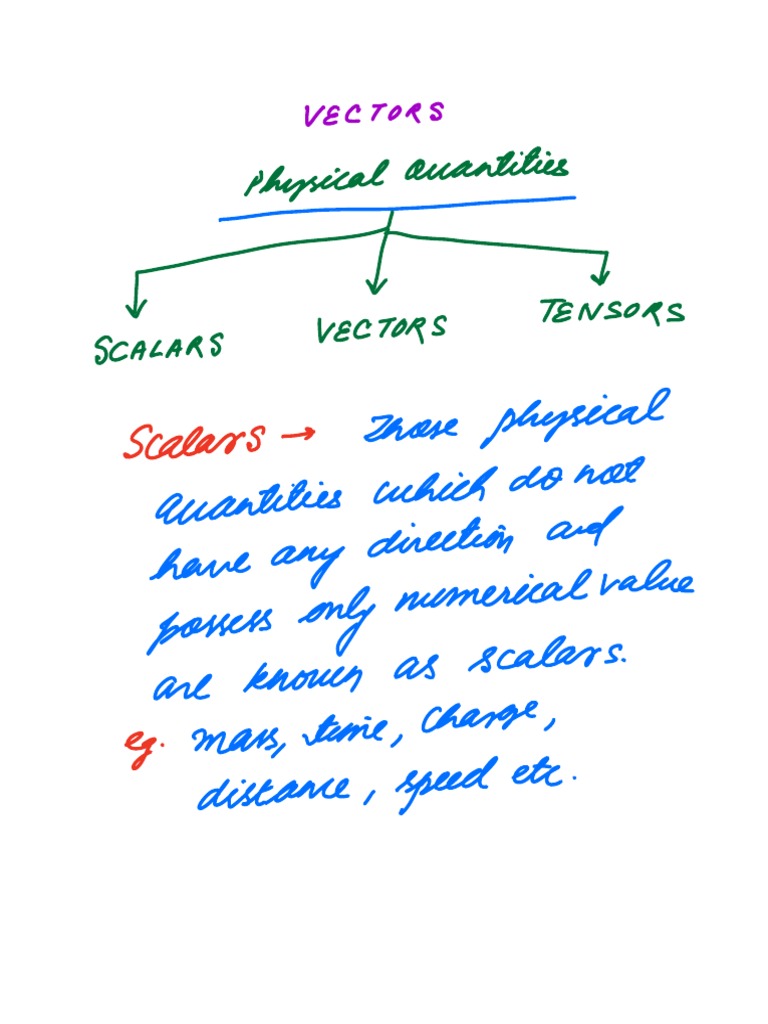 VECTORS
Physical Quantities
SCALARS VECTORS TENSORS
Scalars → Those physical
quantities which do not
have any direction and
possess only numerical value
are known as scalars.
eg. mass, time, charge,
distance, speed etc.